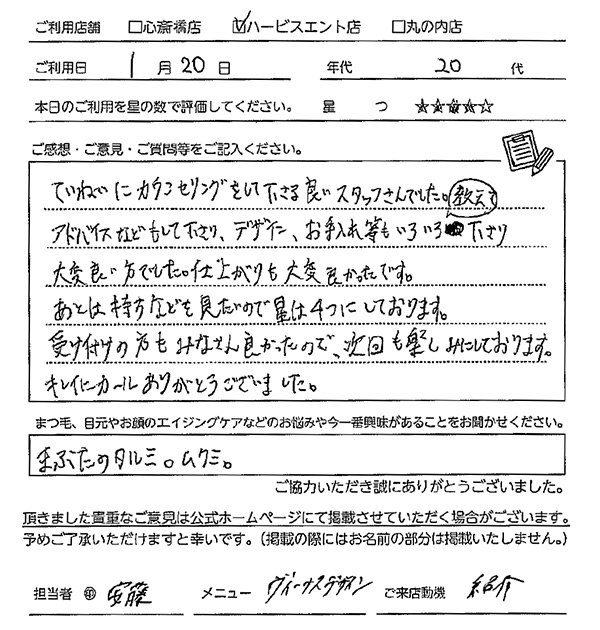 ご利用店舗 □心斎橋店 ☑ハービスエント店 □丸の内店
ご利用日 1月20日 年代 20代
本日のご利用を星の数で評価してください。 星 つ ★★★★☆
ご感想・ご意見・ご質問等をご記入ください。
ていねいにカウンセリングをして下さる良いスタッフさんでした。教えて
アドバイスなどもして下さり、デザイン、お手入れ等もいろいろ下さり
大変良い方でした。仕上がりも大変良かったです。
あとは持ちなども見たいので星は4つにしております。
受け付けの方もみなさん良かったので、次回も楽しみにしております。
キレイにカールありがとうございました。
まつ毛、目元やお顔のエイジングケアなどのお悩みや今一番興味があることをお聞かせください。
まぶたのタルミ。ムクミ。
ご協力いただき誠にありがとうございました。
頂きました貴重なご意見は公式ホームページにて掲載させていただく場合がございます。
予めご了承いただけますと幸いです。(掲載の際にはお名前の部分は掲載いたしません。)
担当者 ㊞ 安藤 メニュー ヴィーナスデザイン ご来店動機 紹介